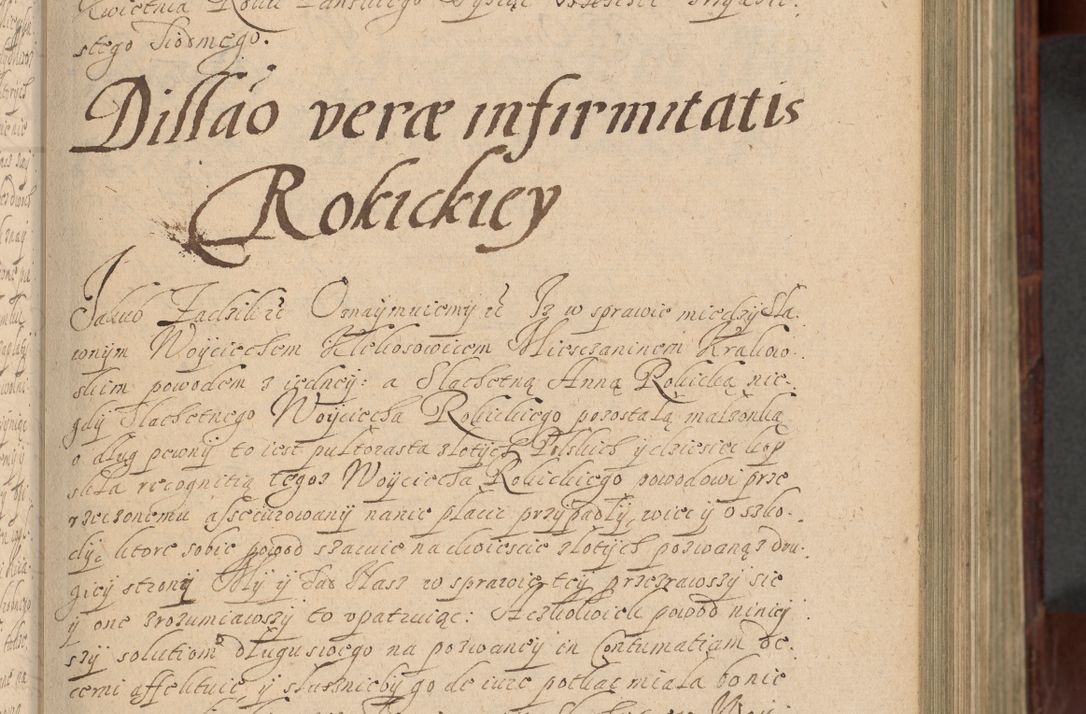 stego siodmego.
Dillao veræ infirmitatis
Rokickiey
Jakub Zadzik etc Oznaymuiemy etc Iz w sprawie między Sła-
wnym Woyciechem Mieszczaninem Krakow-
skim powodem z iedney: a Slachetną Anną Rokicką nie-
gdy Slachetnego Woyciecha Rokickiego pozostałą małżonką
o dług pewny to iest pułtorasta złotych Polskich y dziesięc kop
siła recognitią tegoż Woyciecha Rokickiego powodowi prze
rzeczonemu assecurowany na nie płacic przypadły, więc y o szko-
dy, ktore sobie powod szacuie na dwiescie złotych pozwaną z dru-
giey strony My y Sąd Nasz w sprawie tey przezrawszy się
y onę zrozumiawszy to upatruiąc: Aczkolwiek powod niniey
szy solutiom długu swego na pozwaney in Contumatiam de-
cerni affektuie y słusznieby go de iure potkac miała bo nie